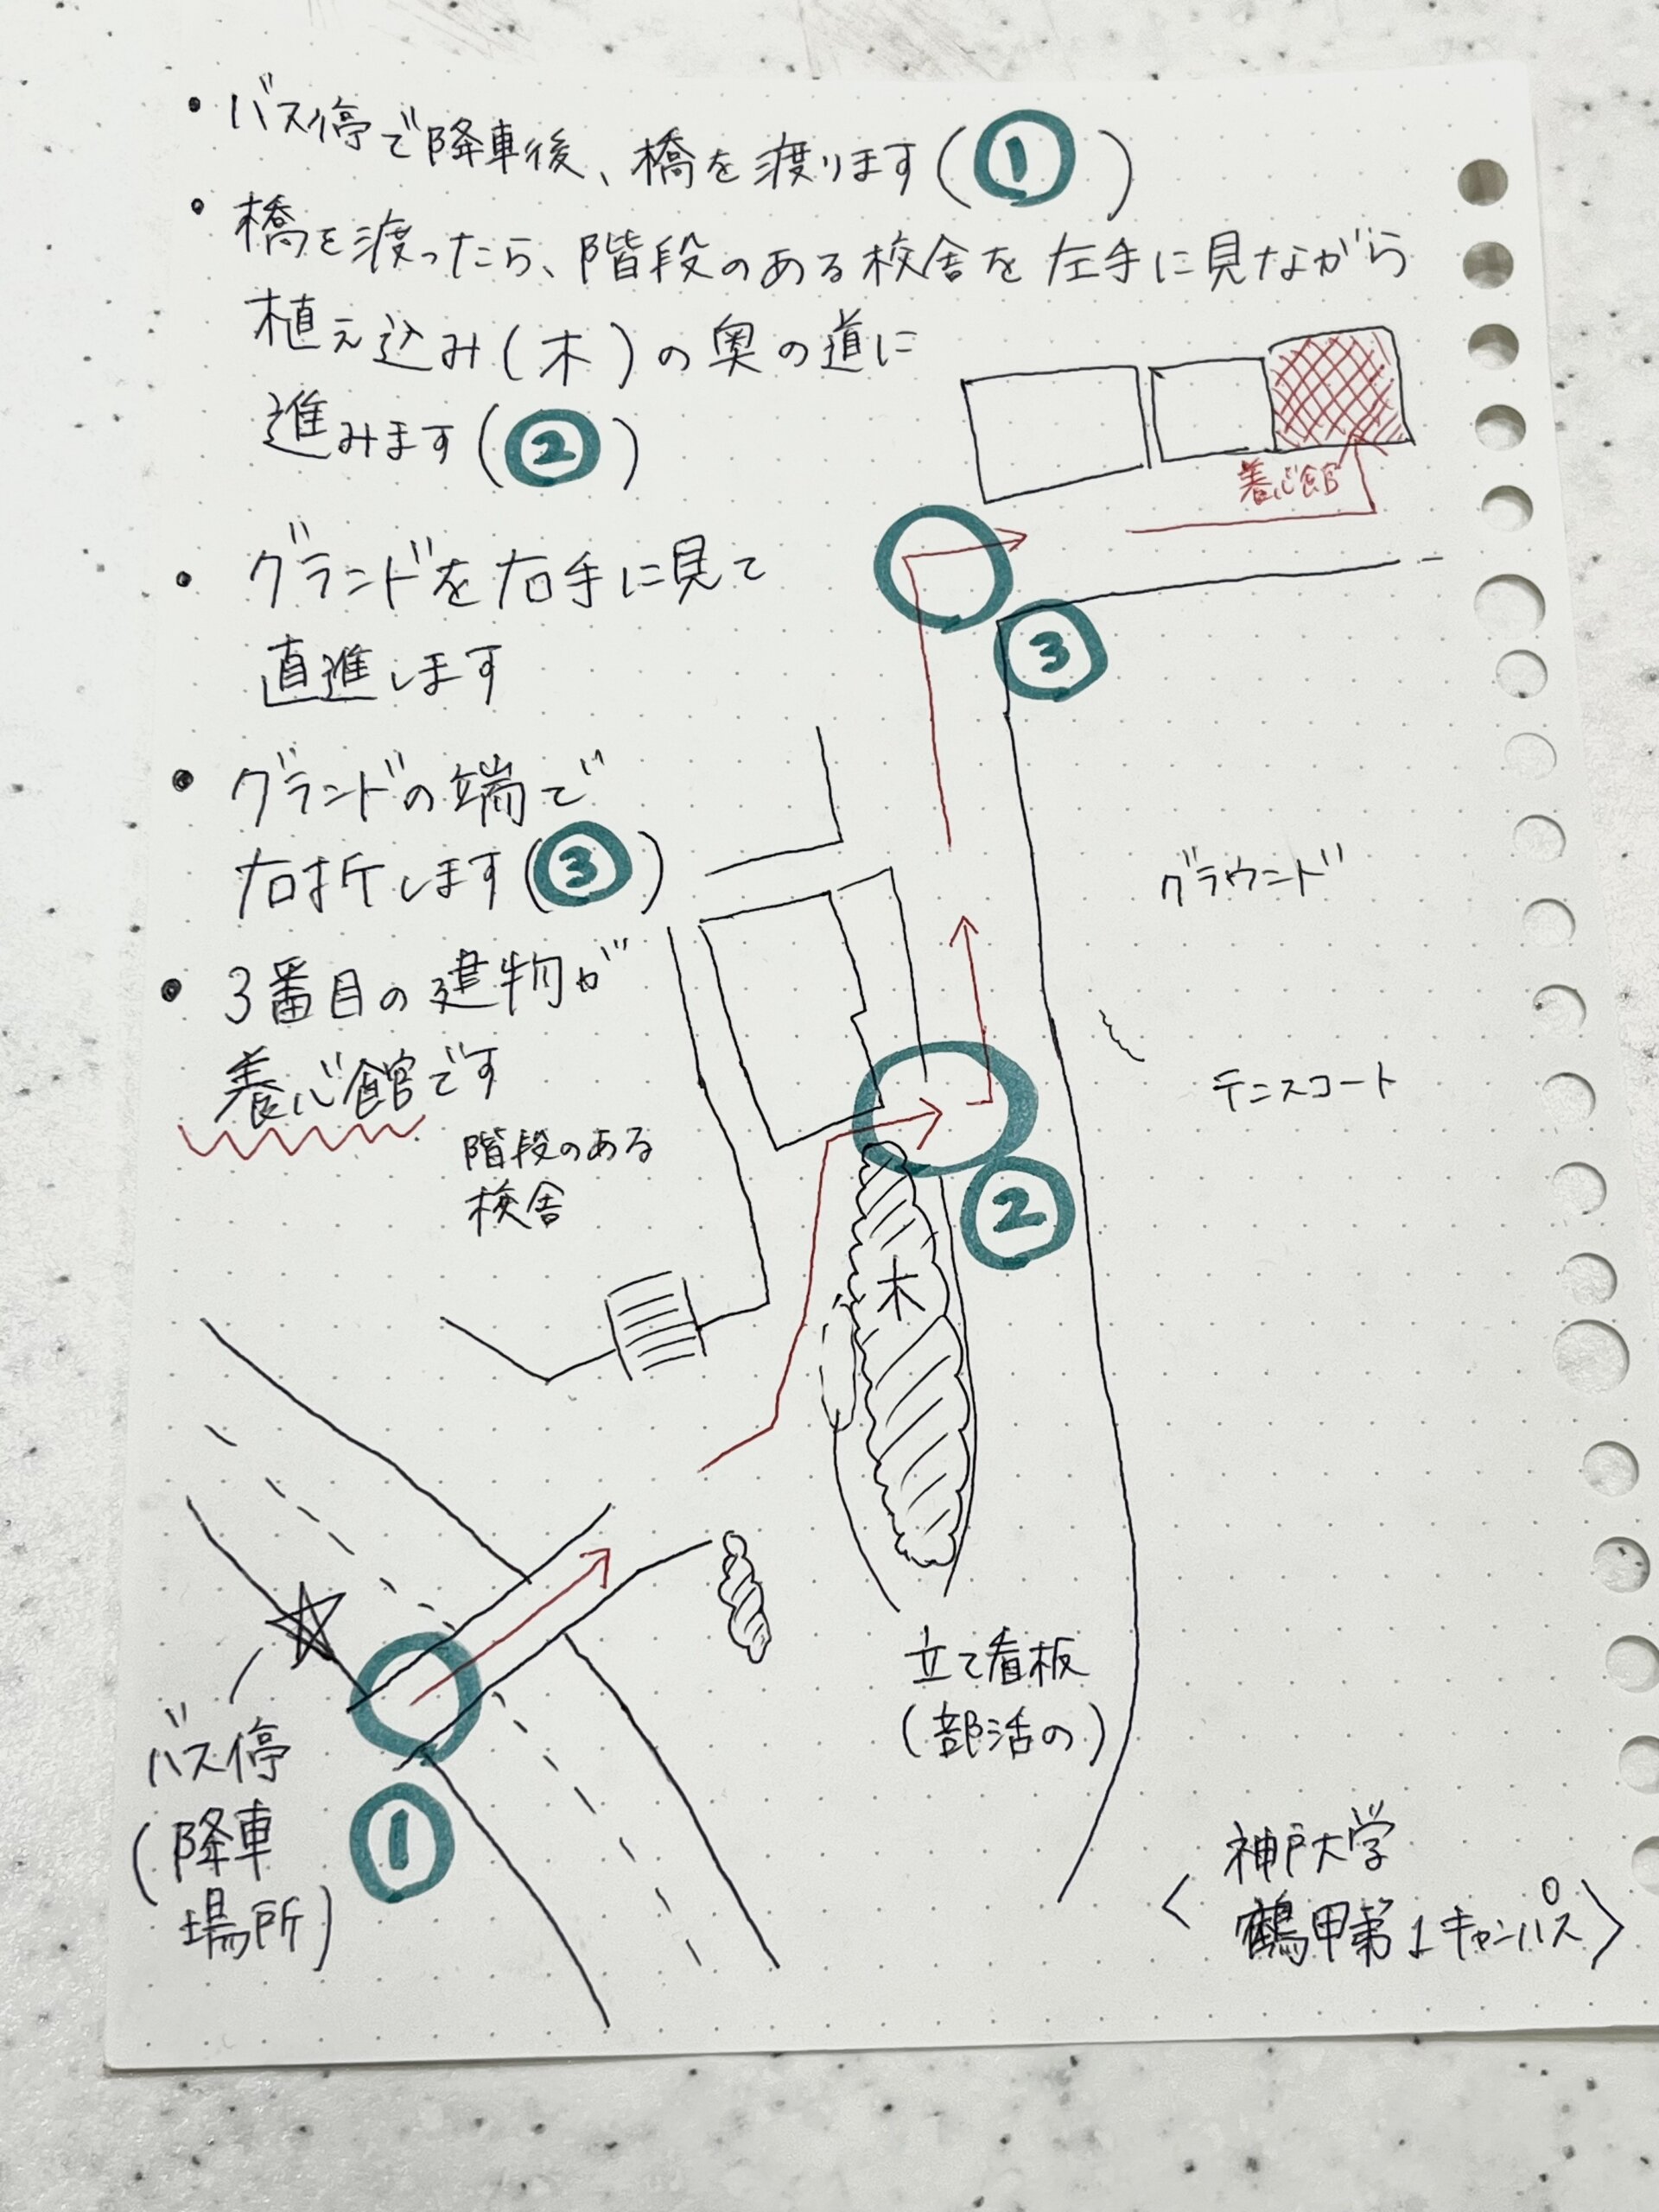 • バス停で降車後、橋を渡ります(①)
• 橋を渡ったら、階段のある校舎を左手に見ながら
植え込み(木)の奥の道に
進みます(②)
• グランドを右手に見て
直進します
• グランドの端で
右折します(③)
• 3番目の建物が
養心館です
養心館
③
グラウンド
テニスコート
階段のある
校舎
②
木
立て看板
(部活の)
バス停
(降車
場所)
①
〈神戸大学
鶴甲第1キャンパス〉